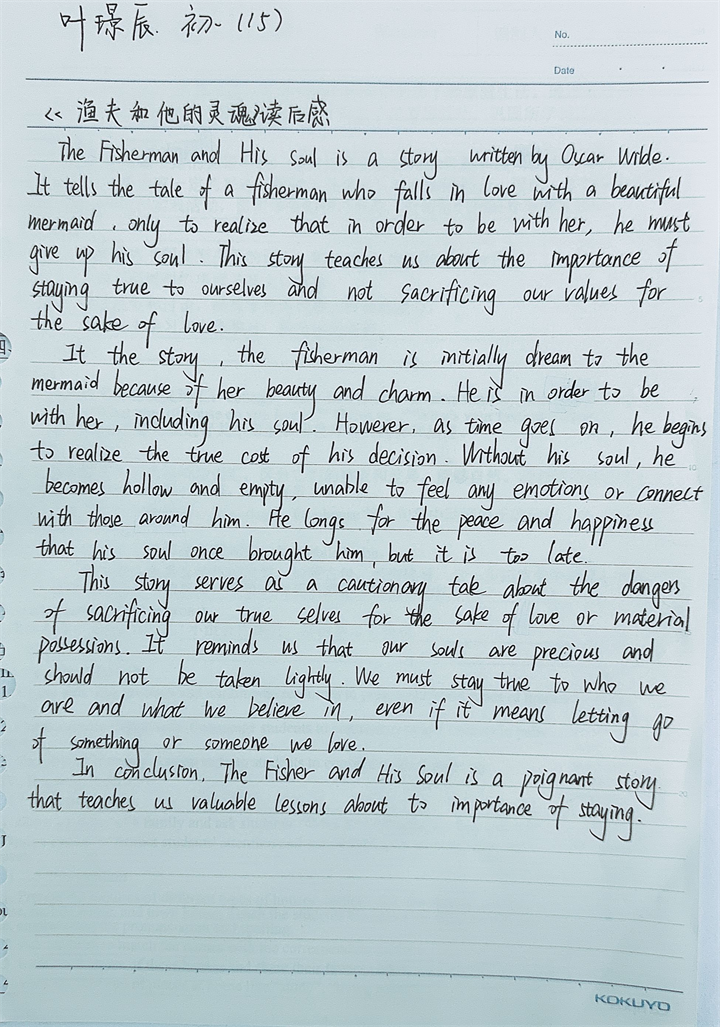 叶璟辰 初一(15)
No.
Date
《渔夫和他的灵魂》读后感
The Fisherman and His soul is a story written by Oscar Wilde.
It tells the tale of a fisherman who falls in love with a beautiful
mermaid, only to realize that in order to be with her, he must
give up his soul. This story teaches us about the importance of
staying true to ourselves and not sacrificing our values for
the sake of love.
It the story, the fisherman is initially dream to the
mermaid because of her beauty and charm. He is in order to be
with her, including his soul. However, as time goes on, he begins
to realize the true cost of his decision. Without his soul, he
becomes hollow and empty, unable to feel any emotions or connect
with those around him. He longs for the peace and happiness
that his soul once brought him, but it is too late.
This story serves as a cautionary tale about the dangers
of sacrificing our true selves for the sake of love or material
possessions. It reminds us that our souls are precious and
should not be taken lightly. We must stay true to who we
are and what we believe in, even if it means letting go
of something or someone we love.
In conclusion, The Fisher and His Soul is a poignant story
that teaches us valuable lessons about to importance of staying.
KOKUYO